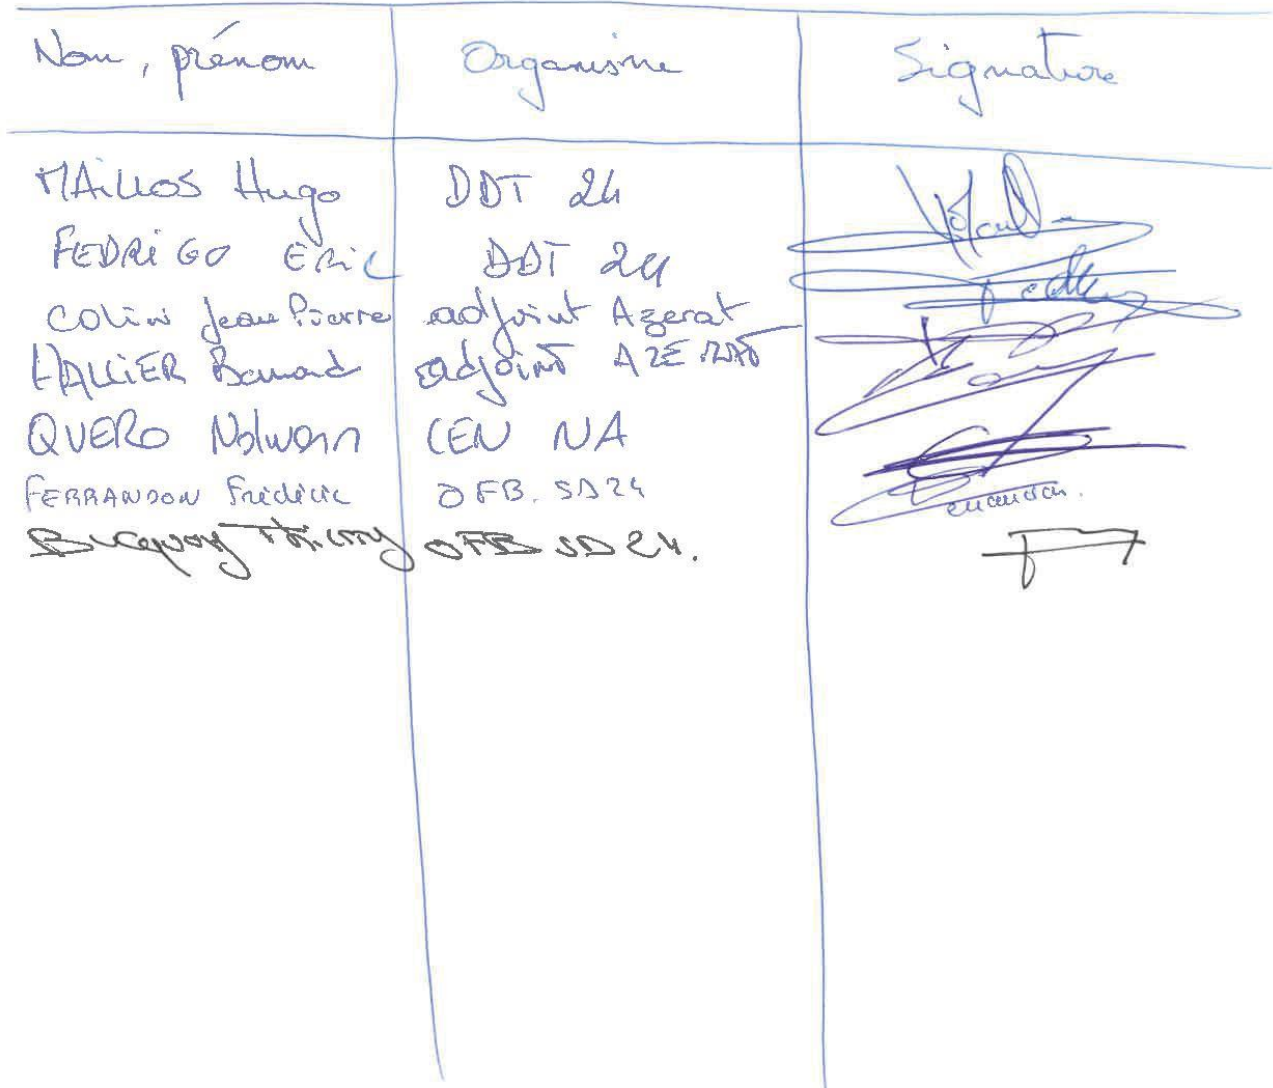 Nom, prénom Organisme Signature
MAILLOS Hugo DDT 24
FEDRIGO ERIC DDT 24
COLIN Jean Pierre adjoint Azerat
HALLIER Bernard adjoint AZERAT
QUERO Nolwenn CEN NA
FERRANDON Frédéric OFB. SD24
Bucquoy Thierry OFB SD 24.